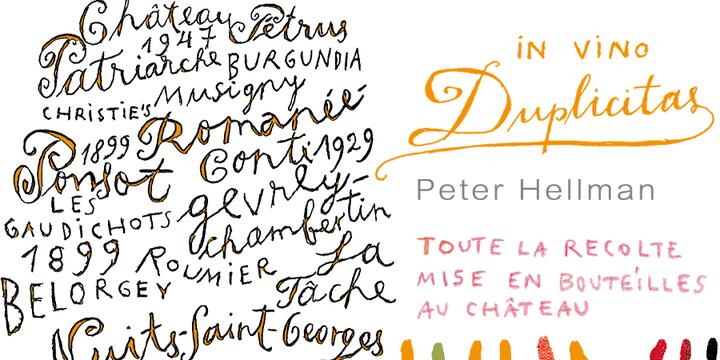 Château Pétrus
1947
Patriarche BURGUNDIA
Musigny
CHRISTIE'S
Romanée
1899 Conti 1929
Ponsot
LES
GAUDICHOTS gevrey-
chambertin
1899 ROUMIER La
Tâche
BELORGEY
Nuits-Saint-Georges
IN VINO
Duplicitas
Peter Hellman
TOUTE LA RECOLTE
MISE EN BOUTEILLES
AU CHÂTEAU